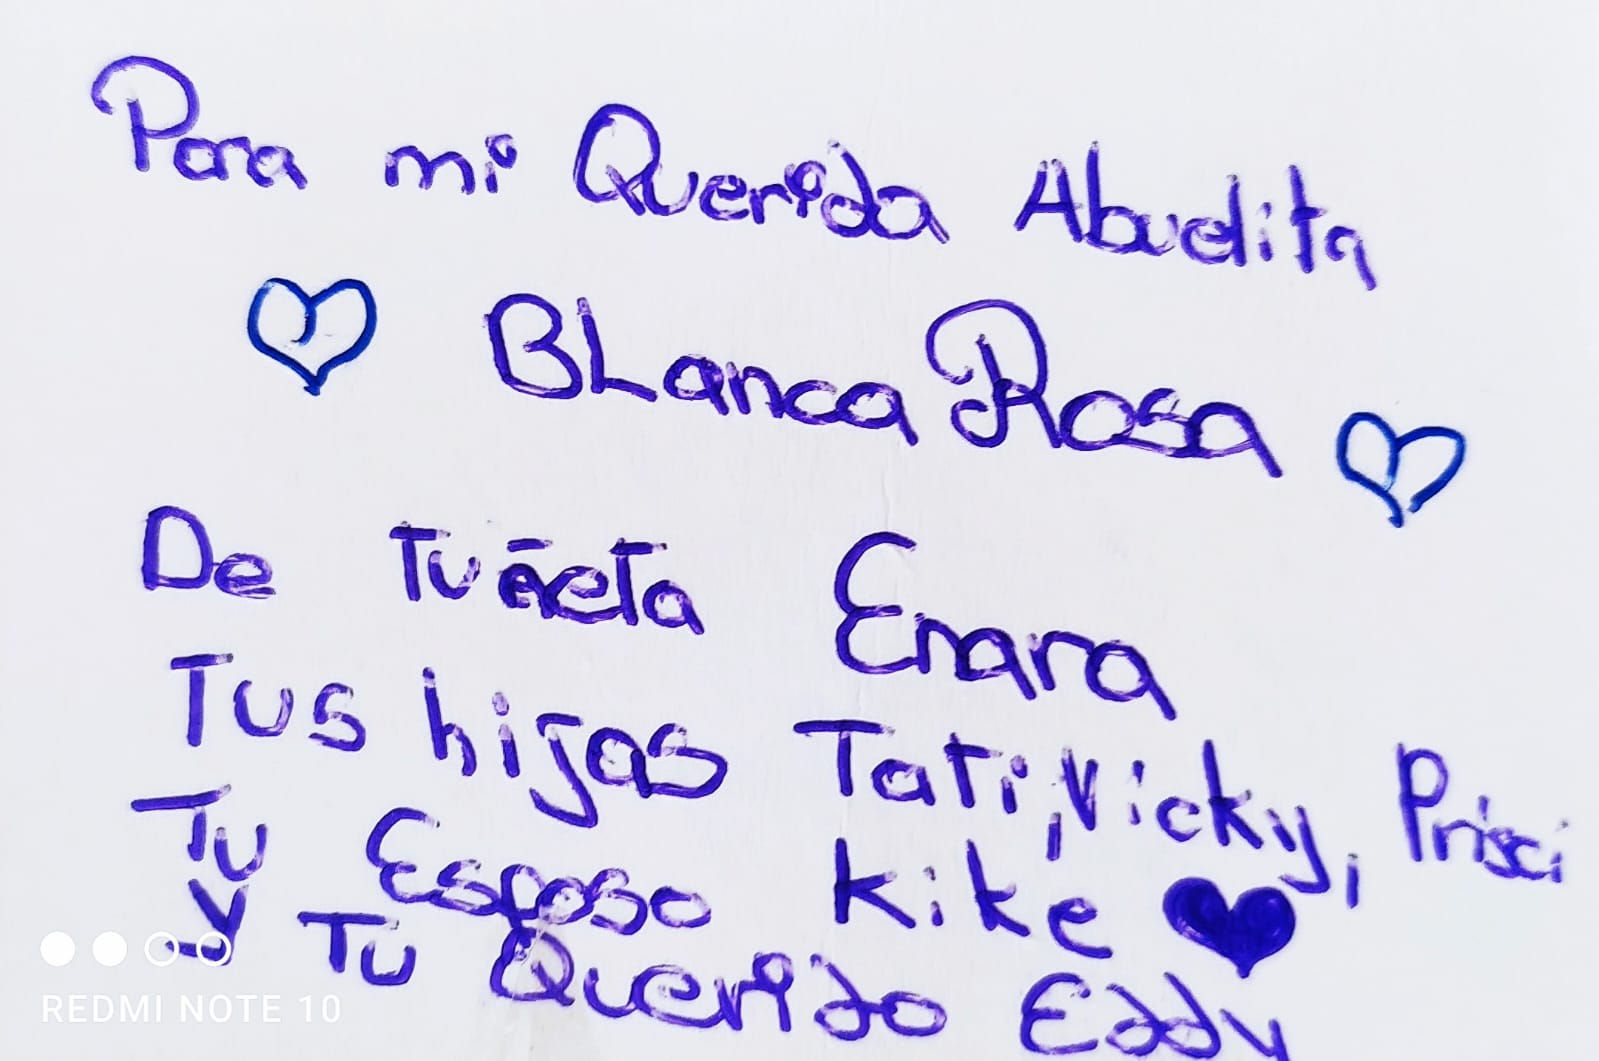 Para mi Querida Abuelita
BLanca Rosa
De Tu Enara
Tus hijas Tati, Vicky, Prisci
Tu Esposo Kike
y Tu Querido Eddy
REDMI NOTE 10